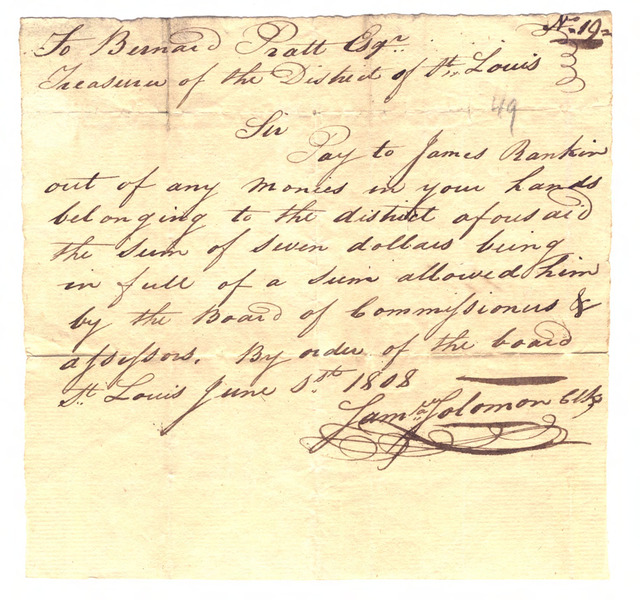 No. 19
To Bernard Pratt Esqr.
Treasurer of the District of St. Louis
49
Sir
Pay to James Rankin
out of any monies in your hands
belonging to the district aforesaid
the sum of seven dollars being
in full of a sum allowed him
by the Board of Commissioners &
assessors. By order of the board
St. Louis June 1808
Saml. Solomon Clk